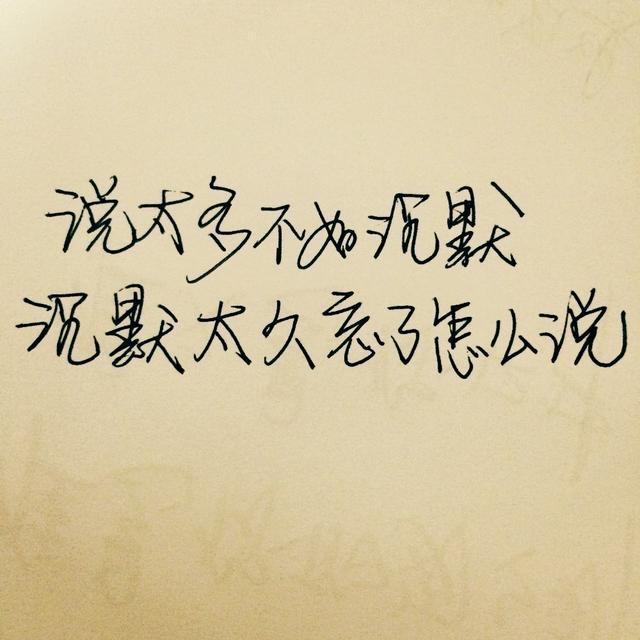 说太多不如沉默
沉默太久忘了怎么说